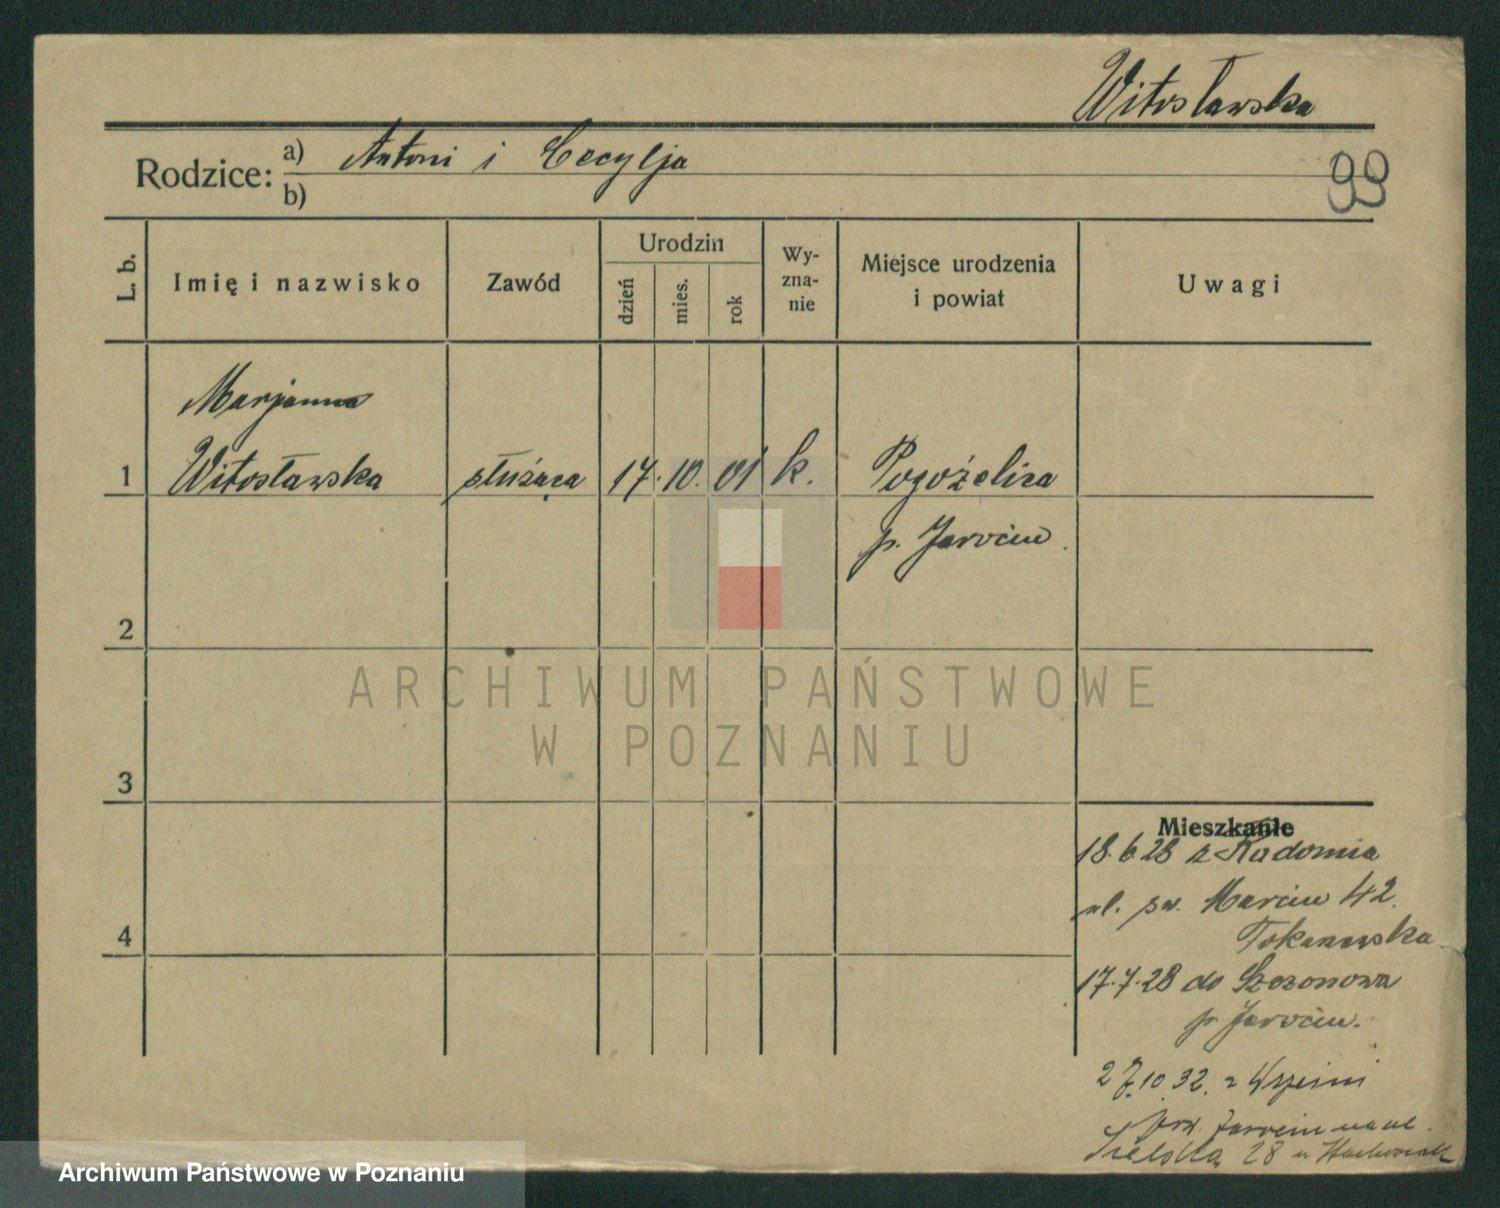 Witosławska
99
Rodzice: a) Antoni i Cecylja
b)
L. b.
Imię i nazwisko
Zawód
Urodzin
dzień
mies.
rok
Wy-
zna-
nie
Miejsce urodzenia
i powiat
Uwagi
Marjanna
1 Witosławska służąca 17. 10. 01 k. Pogożelica
p. Jarocin.
2
3
4
ARCHIWUM PAŃSTWOWE
W POZNANIU
Mieszkanie
18.6.28 z Radomia
ul. św. Marcin 42.
17.7.28 do
p. Jarocin.
27.10.32. z Wrześni
Jarocin na ul.
28 u
Archiwum Państwowe w Poznaniu